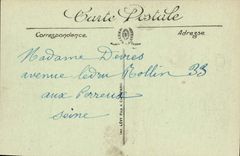 Carte Postale
Correspondance. Adresse.
Madame Devres
avenue ledru Rollin 33
aux Perreux
Seine